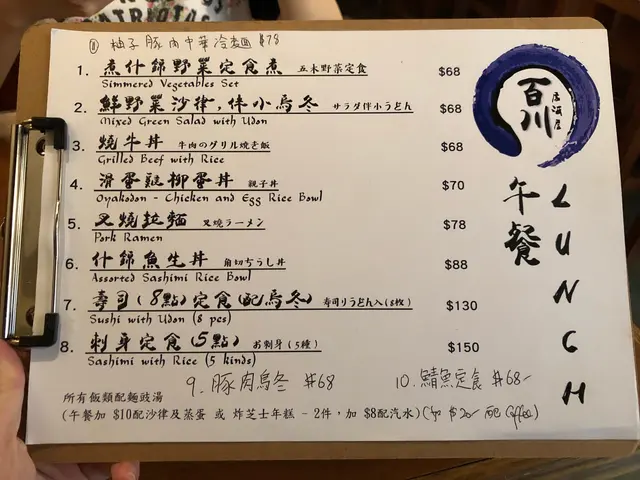 ⑪ 柚子豚肉中華冷麵 $78
1. 煮什錦野菜定食煮 五木野菜定食 $68
Simmered Vegetables Set
2. 鮮野菜沙律,伴小烏冬 サラダ伴小うどん $68
Mixed Green Salad with Udon
3. 燒牛丼 牛肉のグリル焼き飯 $68
Grilled Beef with Rice
4. 滑蛋雞柳蛋丼 親子丼 $70
Oyakodon - Chicken and Egg Rice Bowl
5. 叉燒拉麵 叉焼ラーメン $78
Pork Ramen
6. 什錦魚生丼 角切ぢうし丼 $88
Assorted Sashimi Rice Bowl
7. 壽司(8點)定食(配烏冬) 寿司りうどん入(8枚) $130
Sushi with Udon (8 pcs)
8. 刺身定食(5點) お刺身(5種) $150
Sashimi with Rice (5 kinds)
9. 豚肉烏冬 $68
10. 鯖魚定食 $68-
所有飯類配麵豉湯
(午餐加 $10配沙律及蒸蛋 或 炸芝士年糕 - 2件, 加 $8配汽水) (加 $20 配 Coffee)
百川
居酒屋
午餐
LUNCH